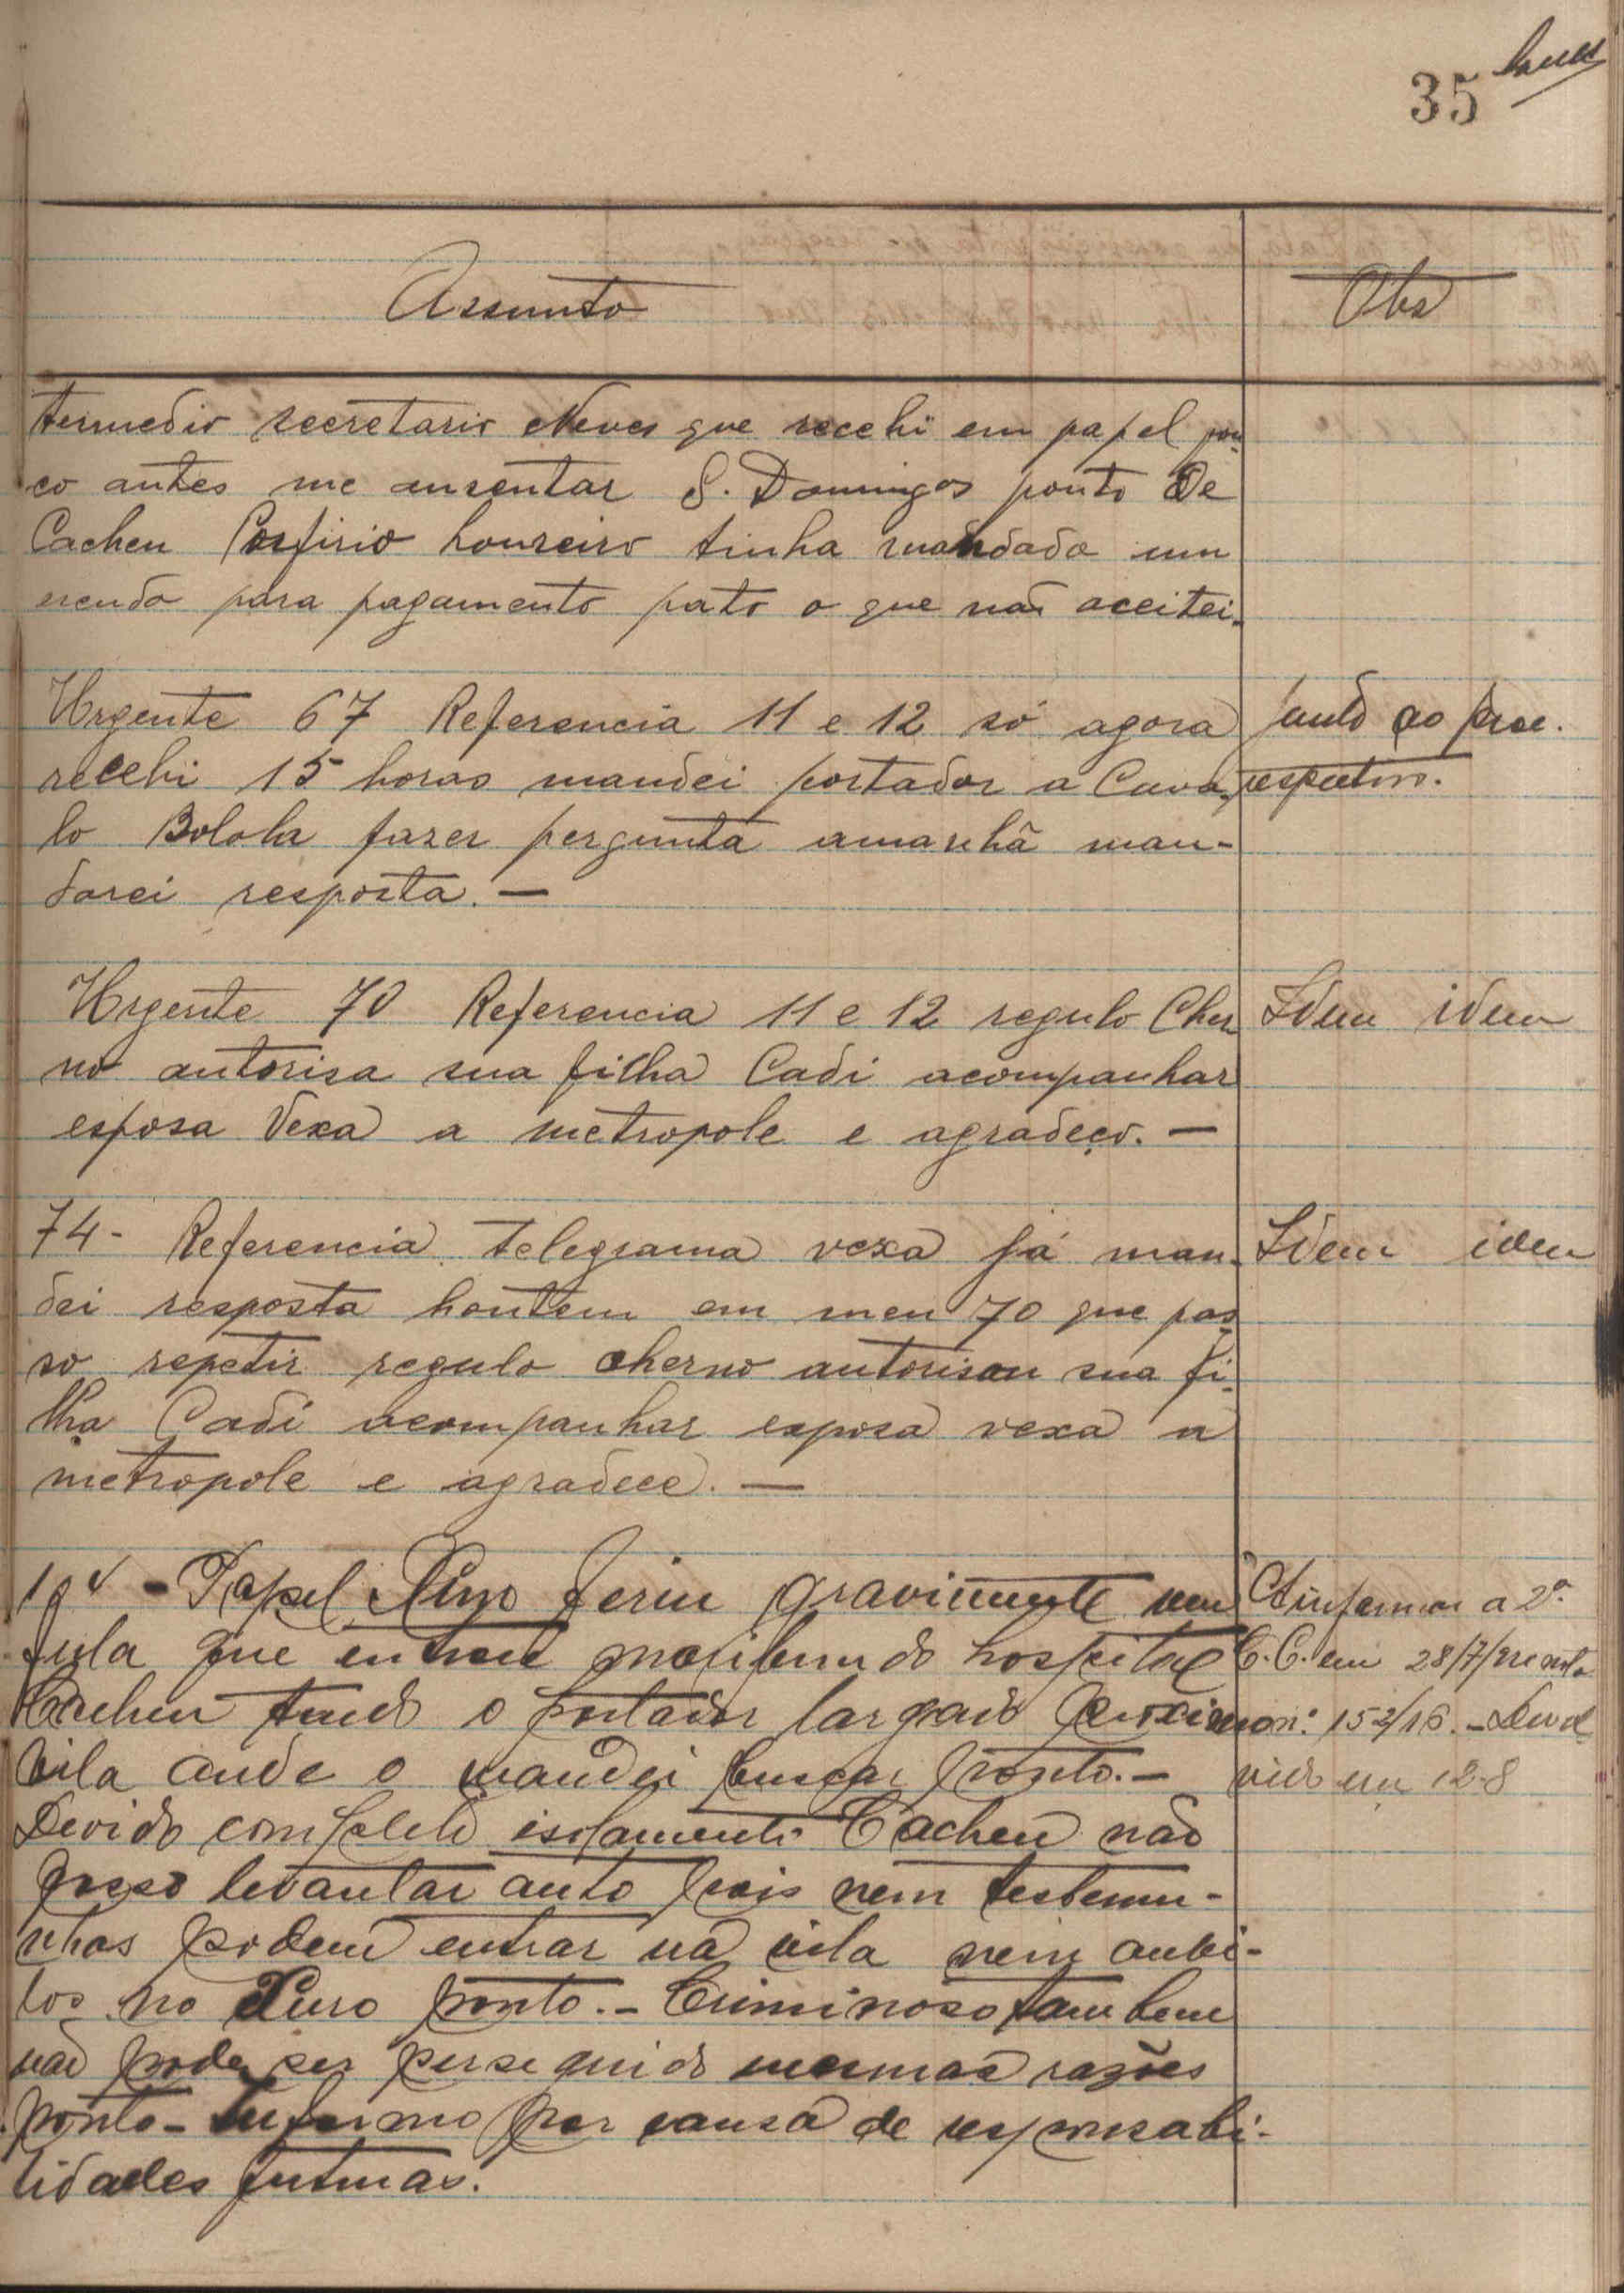 35
Assunto
Obs
termedio secretario Neves que recebi em papel pou-
co antes me ausentar S. Domingos ponto De
Cacheu Porfirio Loureiro tinha mandado um
para pagamento pato o que não aceitei.
Urgente 67 Referencia 11 e 12 só agora
Junto ao proc.
recebi 15 horas mandei portador a Cava-
respectivo.
lo Bolola fazer pergunta amanhã man-
darei resposta. —
Urgente 70 Referencia 11 e 12 regulo Cher
Idem idem
no autorisa sua filha Cadi acompanhar
esposa Vexa a metropole e agradeço. —
74 - Referencia telegrama vexa já man-
Idem idem
dei resposta hontem em meu 70 que pas-
so repetir regulo cherno autorisou sua fi-
lha Cadi acompanhar esposa vexa a
metropole e agradece. —
Papel feriu gravimente um
a 2ª
fula que entrou moribundo hospital
C.C. em 28/7/ nota
Cacheu tendo o portador largado proximo
nº 152/16. - Devol
vila onde o mandei buscar ponto. —
vido em 12-8
Devido completo isolamento Cacheu não
posso levantar auto pois nem testemu-
nhas podem entrar na vila nem
ponto. - Criminoso tambem
não pode ser perseguido mesmas razões
ponto - Informo por causa de responsabi-
lidades futuras.